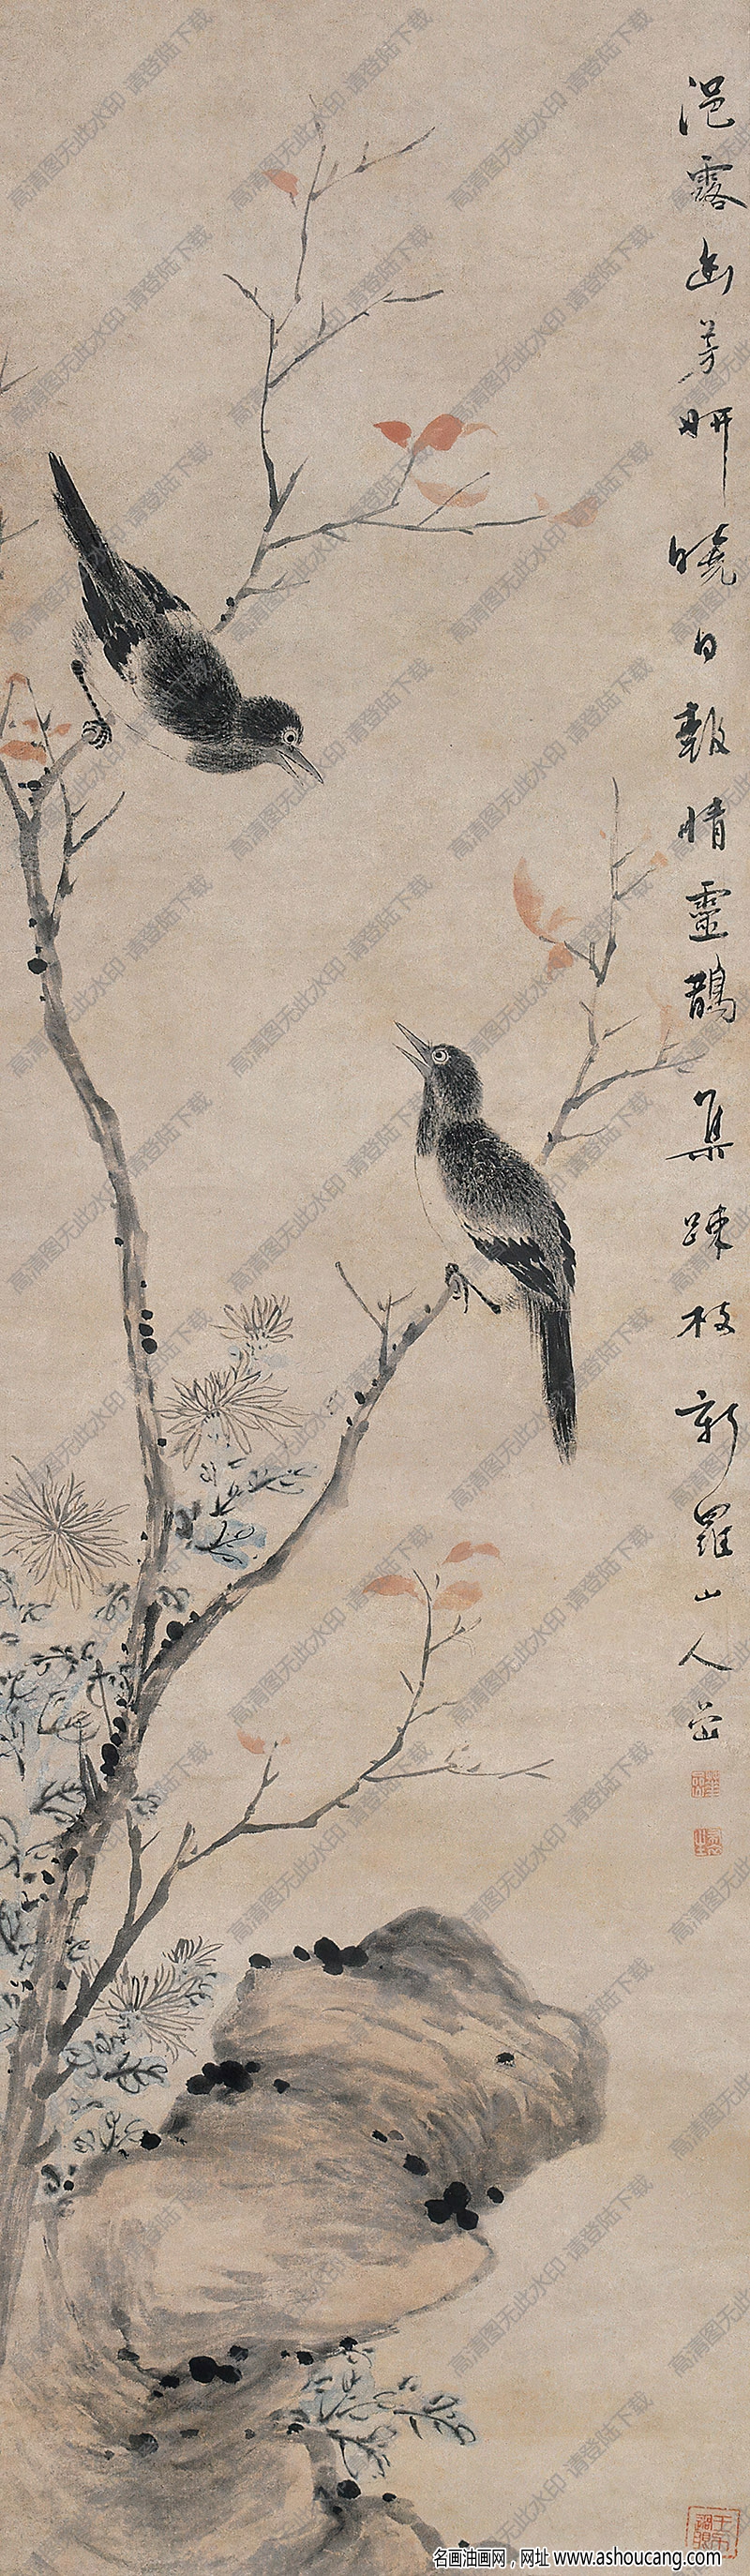 浥露幽芳妍曉日報晴靈鵲集疎枝新羅山人嵒
高清图无此水印 请登陆下载
名画油画网，网址 www.ashoucang.com